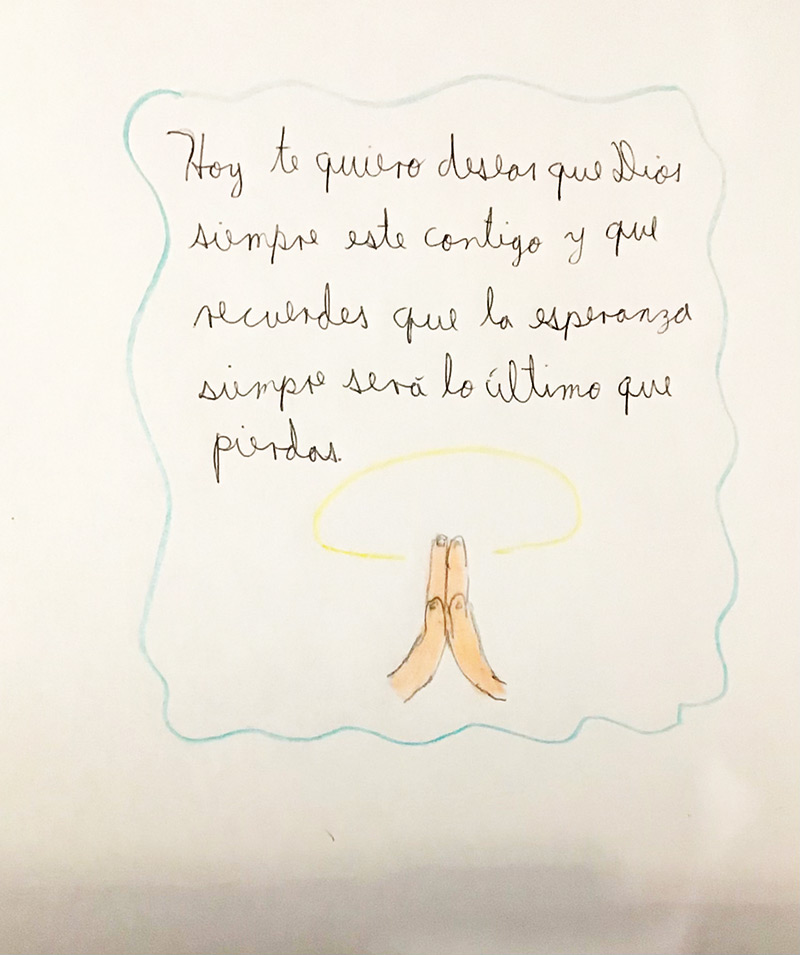 Hoy te quiero desear que Dios
siempre este contigo y que
recuerdes que la esperanza
siempre será lo último que
pierdas.